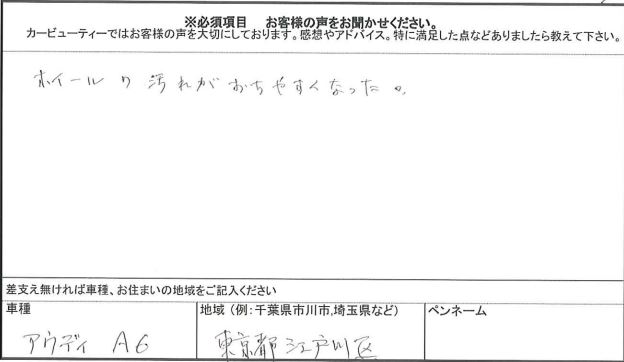 ※必須項目　お客様の声をお聞かせください。
カービューティーではお客様の声を大切にしております。感想やアドバイス。特に満足した点などありましたら教えて下さい。
ホイールの汚れがおちやすくなった。
差支え無ければ車種、お住まいの地域をご記入ください
車種　地域（例:千葉県市川市,埼玉県など）　ペンネーム
アウディ A6　東京都江戸川区